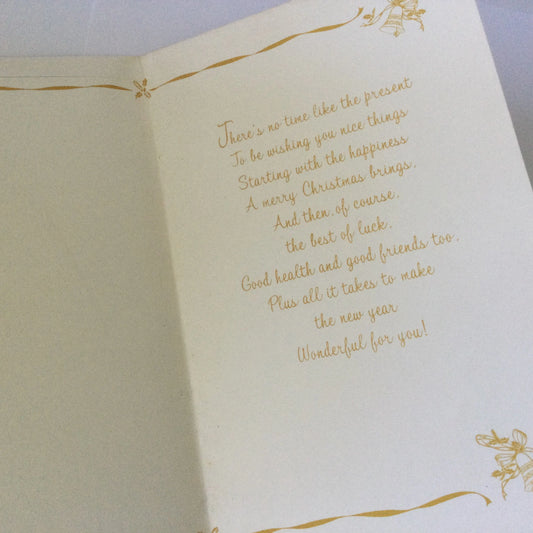 There's no time like the present
To be wishing you nice things
Starting with the happiness
A merry Christmas brings,
And then, of course,
the best of luck,
Good health and good friends too,
Plus all it takes to make
the new year
Wonderful for you!